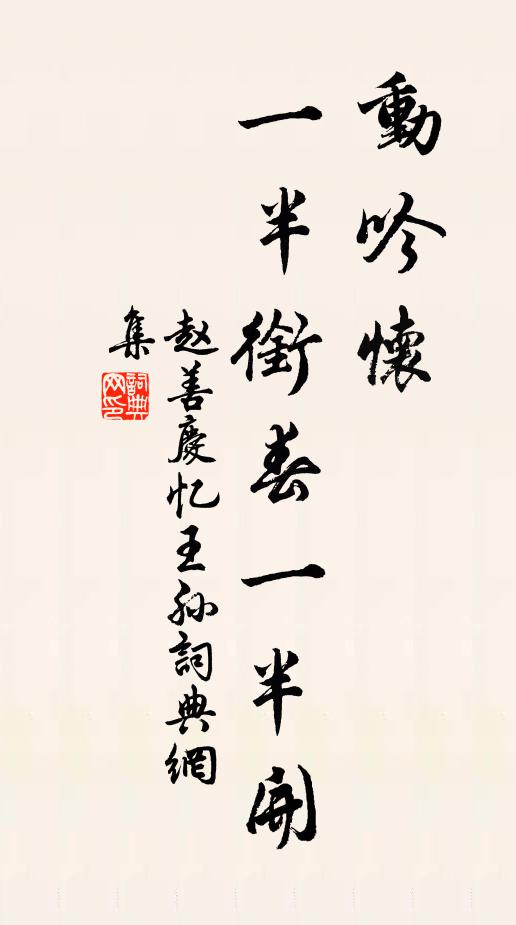 動吟懷
一半銜春一半開
赵善慶忆王孙詞典網
集
詞典
网印